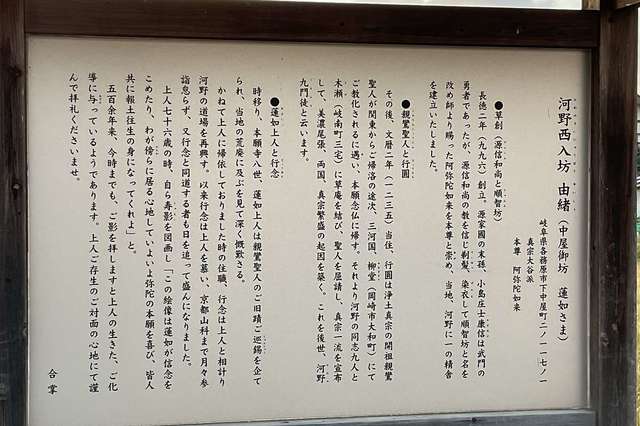 河野西入坊 由緒(中屋御坊 蓮如さま)
岐阜県各務原市下中屋町二ノ一一七ノ一
真宗大谷派
本尊 阿弥陀如来
●草創(源信和尚と順智坊)
長徳二年(九九六)創立。源家國の末孫、小島庄士康信は武門の
勇者であったが、源信和尚の教を信じ剃髪、染衣して順智坊と名を
改め師より賜った阿弥陀如来を本尊と崇め、当地、河野に一の精舎
を建立いたしました。
●親鸞聖人と行圓
その後、文暦二年(一二三五)当住、行圓は浄土真宗の開祖親鸞
聖人が関東からご帰洛の途次、三河国、柳堂(岡崎市大和町)にて
ご教化されるに遇い、本願念仏に帰す。それより河野の同志九人と
木瀬(岐南町三宅)に草庵を結び、聖人を屈請し、真宗一流を宣布
して、美濃尾張、両国、真宗繁盛の起因を築く。これを後世、河野
九門徒と云います。
●蓮如上人と行念
時移り、本願寺八世、蓮如上人は親鸞聖人のご旧蹟ご巡錫を企て
られ、当地の荒廃に及ぶを見て深く慨歎さる。
かねて上人に帰依しておりました時の住職、行念は上人と相計り
河野の道場を再興す。以来行念は上人を慕い、京都山科まで月々参
詣怠らず、又行念と同道する者も日を追って盛んになりました。
上人七十六歳の時、自ら寿影を図画し「この絵像は蓮如が信念を
こめたり、わが傍らに居る心地していよいよ弥陀の本願を喜び、皆人
共に報土往生の身になってくれよ」と。
五百余年来、今時までも、ご影を拝しますと上人の生きた、ご化
導に与っているようであります。上人ご存生のご対面の心地にて謹
んで拝礼くださいませ。
合掌